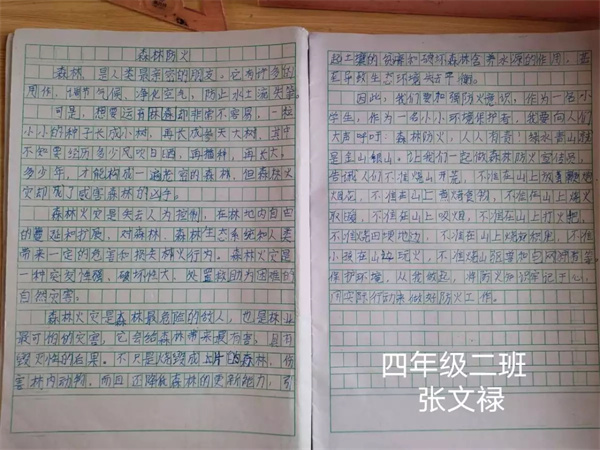 森林防火
森林，是人类最亲密的朋友。它有许多的
用作，调节气候，净化空气，防止水土流失等。
可是，想要运有林森却非常不容易，一粒
小小的种子长成小树，再长成参天大树，其中
不知要经历多少风吹日晒，再播种，再长大。
多少年，才能构成一遍老密的森林，但森林火
灾却成了威害森林的凶手。
森林火灾是失去人为控制，在林地内自由
的蔓延和扩展，对森林、森林生态系统和人类
带来一定的危害和损失林火行为。森林火灾是
一种突发性强、破坏性大、处置救助为困难的
自然灾害。
森林火灾是森林最危险的敌人，也是林业
最可怕的灾害，它会给森林带来最有害，具有
毁灭性的后果。不只是烧毁成片的森林，伤
害林内动物，而且还降低森林的更新能力，引
起土壤的贫瘠和破坏森林含养水源的作用，甚
至导致生态环境失去平衡。
因此，我们要加强防火意识，作为一名小
学生，作为一名小小环境保护者，我要向人们
大声呼吁：森林防火，人人有责！绿水青山就
是金山银山。让我们一起做森林防火宣传员，
告诫人们不准烧山开荒，不准在山上放鞭炮
烟花，不准在山上焚烧食物，不准在山上烧火
取暖，不准在山上吸烟，不准在山上打火把，
不准烧田埂地边，不准在山上烧秸秆里，不准
小孩在山玩火，不准
保护环境，从我做起，将防火知识牢记于心，
用实际行动来做好防火工作。
四年级二班
张文禄